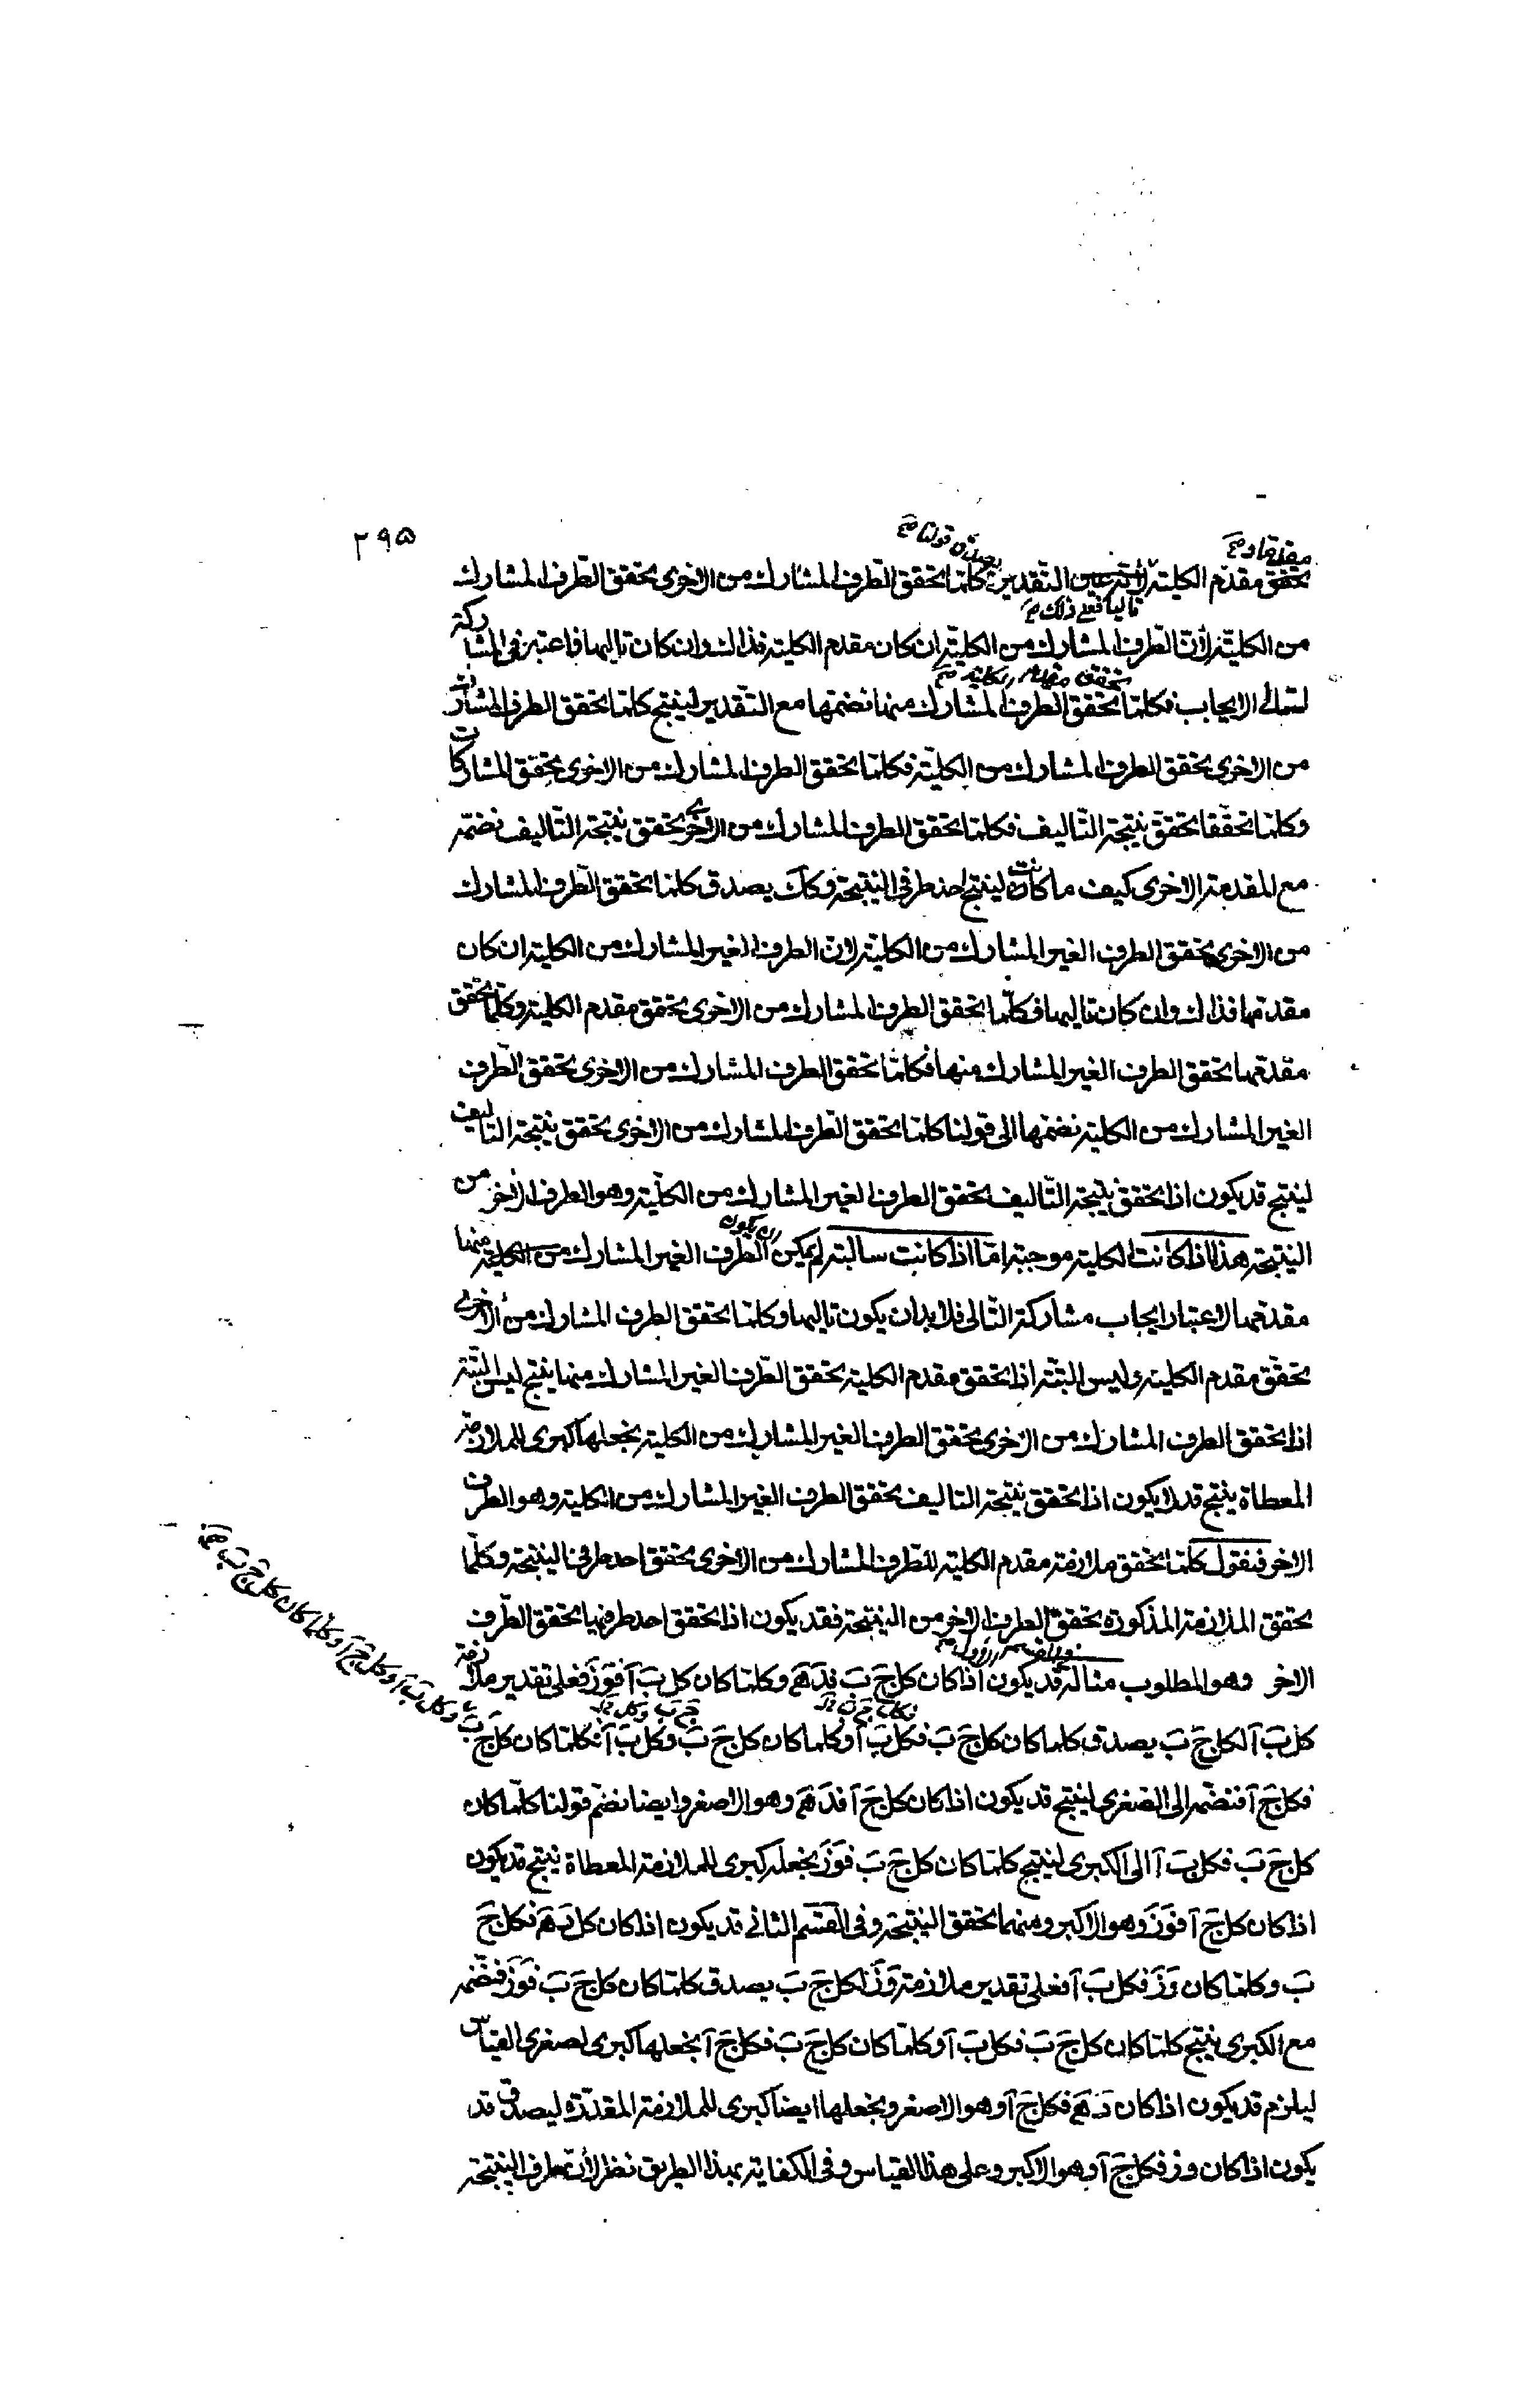 ٢٩۵
تحقق مقدم الكلية التقدير كلما تحقق الطرف المشارك من الاخرى تحقق الطرف المشارك
من الكلية لانّ الطرف المشارك من الكلية ان كان مقدم الكلية فذلك وان كان تاليها فاعتبر فى المشاركة
لتالى الايجاب فكلما تحقق الطرف المشارك منها نضمها مع التقدير لينتج كلما تحقق الطرف المشارك
من الاخرى تحقق الطرف المشارك من الكلية فكلما تحقق الطرف المشارك من الاخرى تحقق المشاركات
وكلما تحققا تحقق نتيجة التاليف فكلما تحقق الطرف المشارك من الاخرى تحقق نتيجة التاليف نضمه
مع المقدمة الاخرى كيف ما كانت لينتج احد طرفى النتيجة وكك يصدق كلما تحقق الطرف المشارك
من الاخرى تحقق الطرف الغير المشارك من الكلية لان الطرف الغير المشارك من الكلية ان كان
مقدمها فذلك وان كان تاليها فكلّما تحقق الطرف المشارك من الاخرى تحقق مقدم الكلية وكلما تحقق
مقدمها تحقق الطرف الغير المشارك منها فكلما تحقق الطرف المشارك من الاخرى تحقق الطرف
الغير المشارك من الكلية نضمها الى قولنا كلما تحقق الطرف المشارك من الاخرى تحقق نتيجة التاليف
لينتج قد يكون اذا تحقق نتيجة التاليف تحقق الطرف الغير المشارك من الكلية وهو الطرف الاخر من
النتيجة هذا اذا كانت الكلية موجبة امّا اذا كانت سالبة لم يمكن ان يكون الطرف الغير المشارك منها
مقدمها لاعتبار ايجاب مشاركة التالى فلا بد ان يكون تاليها وكلما تحقق الطرف المشارك من الاخرى
تحقق مقدم الكلية وليس البتة اذا تحقق مقدم الكلية تحقق الطرف الغير المشارك منها ينتج ليس البتة
اذا تحقق الطرف المشارك من الاخرى تحقق الطرف الغير المشارك من الكلية نجعلها كبرى للملازمة
المعطاة ينتج قد لا يكون اذا تحقق نتيجة التاليف تحقق الطرف الغير المشارك من الكلية وهو الطرف
الاخر فنقول كلما تحقق ملازمة مقدم الكلية للطرف المشارك من الاخرى تحقق احد طرفى النتيجة وكلّما
تحقق الملازمة المذكورة تحقق الطرف الاخر من النتيجة فقد يكون اذا تحقق احد طرفيها تحقق الطرف
الاخر وهو المطلوب مثاله قد يكون اذا كان كل ج ب فد ه وكلما كان كل ب ا فو ز فعلى تقدير ملازمة
كل ب ا لكل ج ب يصدق كلما كان كل ج ب فكل ب ا وكلما كان كل ج ب وكل ب ا فكلما كان كل ج ب
فكل ج ا فنضمه الى الصغرى لينتج قد يكون اذا كان كل ج ا فد ه وهو الاصغر وايضا نضم قولنا كلّما كان
كل ج ب فكل ب ا الى الكبرى لينتج كلما كان كل ج ب فو ز نجعله كبرى للملازمة المعطاة ينتج قد يكون
اذا كان كل ج ا فو ز وهو الاكبر ومنهما تحقق النتيجة وفى القسم الثانى قد يكون اذا كان كل د ه فكل ج
ب وكلما كان و ز فكل ب ا فعلى تقدير ملازمة و ز لكل ج ب يصدق كلما كان كل ج ب فو ز فنضمه
مع الكبرى ينتج كلما كان كل ج ب فكل ب ا وكلّما كان كل ج ب فكل ج ا نجعلها كبرى لصغرى القياس
ليلزم قد يكون اذا كان د ه فكل ج ا وهو الاصغر ونجعلها ايضا كبرى للملازمة المقدّرة ليصدق قد
يكون اذا كان و ز فكل ج ا وهو الاكبر وعلى هذا القياس وفى الكفاية بهذا الطريق نظر لان طرف النتيجة